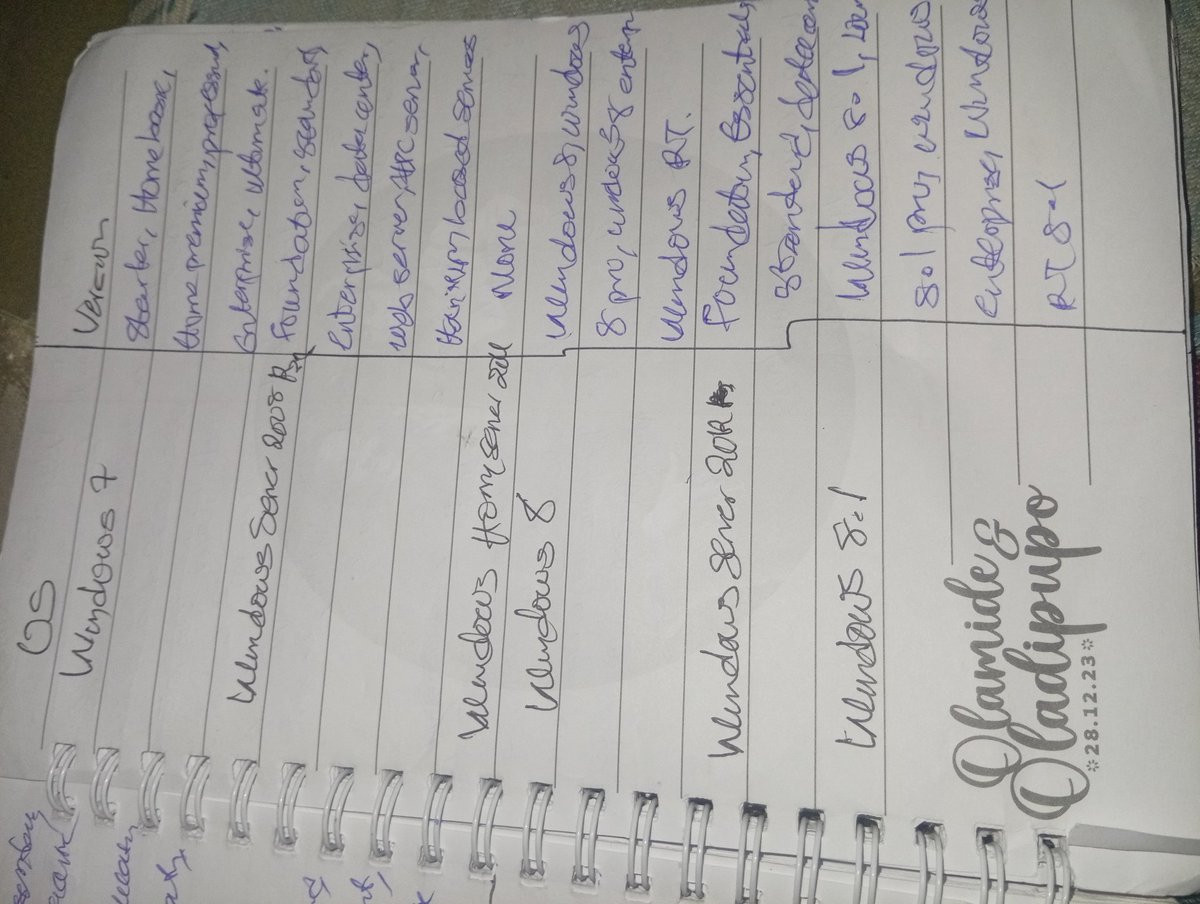 OS Version
Windows 7 Starter, Home basic,
Home premium, professional,
Enterprise, Ultimate.
Windows Server 2008 R2 Foundation, standard,
Enterprise, datacenter,
web server, HPC server,
Itanium based servers
Windows Home server 2011 None
Windows 8 Windows 8, windows
8 pro, windows 8 enterp
Windows RT.
Windows Server 2012 Foundation, Essentials,
Standard, datacen
Windows 8.1 Windows 8.1, win
8.1 pro, windows
enterprise, Windows
RT 8.1
Olamide &
Oladipupo
28.12.23